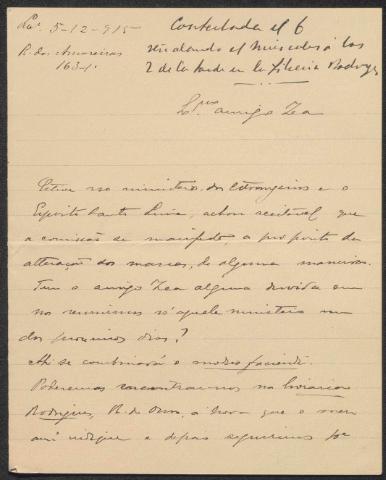 Lxª 5-12-915
R. das Amoreiras
163-1º
Contestada el 6
señalando el miercoles á las
2 de la tarde en la libreria Rodrigues
amigo Zea
Estive no ministerio dos Estrangeiros e o
Espirito Santo Lima, achou aceitavel que
a comissão se manifeste a proposito da
alteração dos marcos, de alguma maneira.
Tem o amigo Zea alguma duvida em
nos reunirmos n'aquele ministerio um
dos proximos dias?
Ahi se combinará o modus faciendi.
Poderemos encontrarmo-nos na livraria
Rodrigues, R. do Ouro, á hora que o meu
amº indique e depois seguirmos